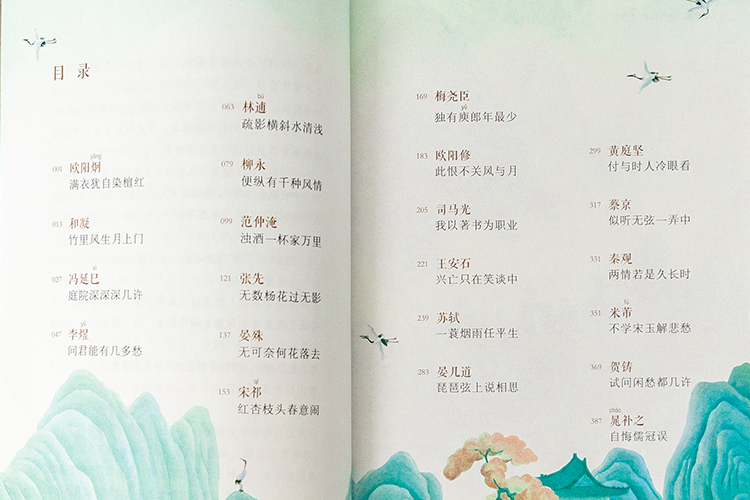 目录
jiǒng
001 欧阳炯
满衣犹自染檀红
013 和凝
竹里风生月上门
sì
027 冯延巳
庭院深深深几许
yù
047 李煜
问君能有几多愁
bū
063 林逋
疏影横斜水清浅
079 柳永
便纵有千种风情
099 范仲淹
浊酒一杯家万里
121 张先
无数杨花过无影
137 晏殊
无可奈何花落去
qí
153 宋祁
红杏枝头春意闹
169 梅尧臣
yǔ
独有庾郎年最少
183 欧阳修
此恨不关风与月
205 司马光
我以著书为职业
221 王安石
兴亡只在笑谈中
239 苏轼
一蓑烟雨任平生
283 晏几道
琵琶弦上说相思
299 黄庭坚
付与时人冷眼看
317 蔡京
似听无弦一弄中
331 秦观
两情若是久长时
fú
351 米芾
不学宋玉解悲愁
369 贺铸
试问闲愁都几许
cháo
387 晁补之
自悔儒冠误